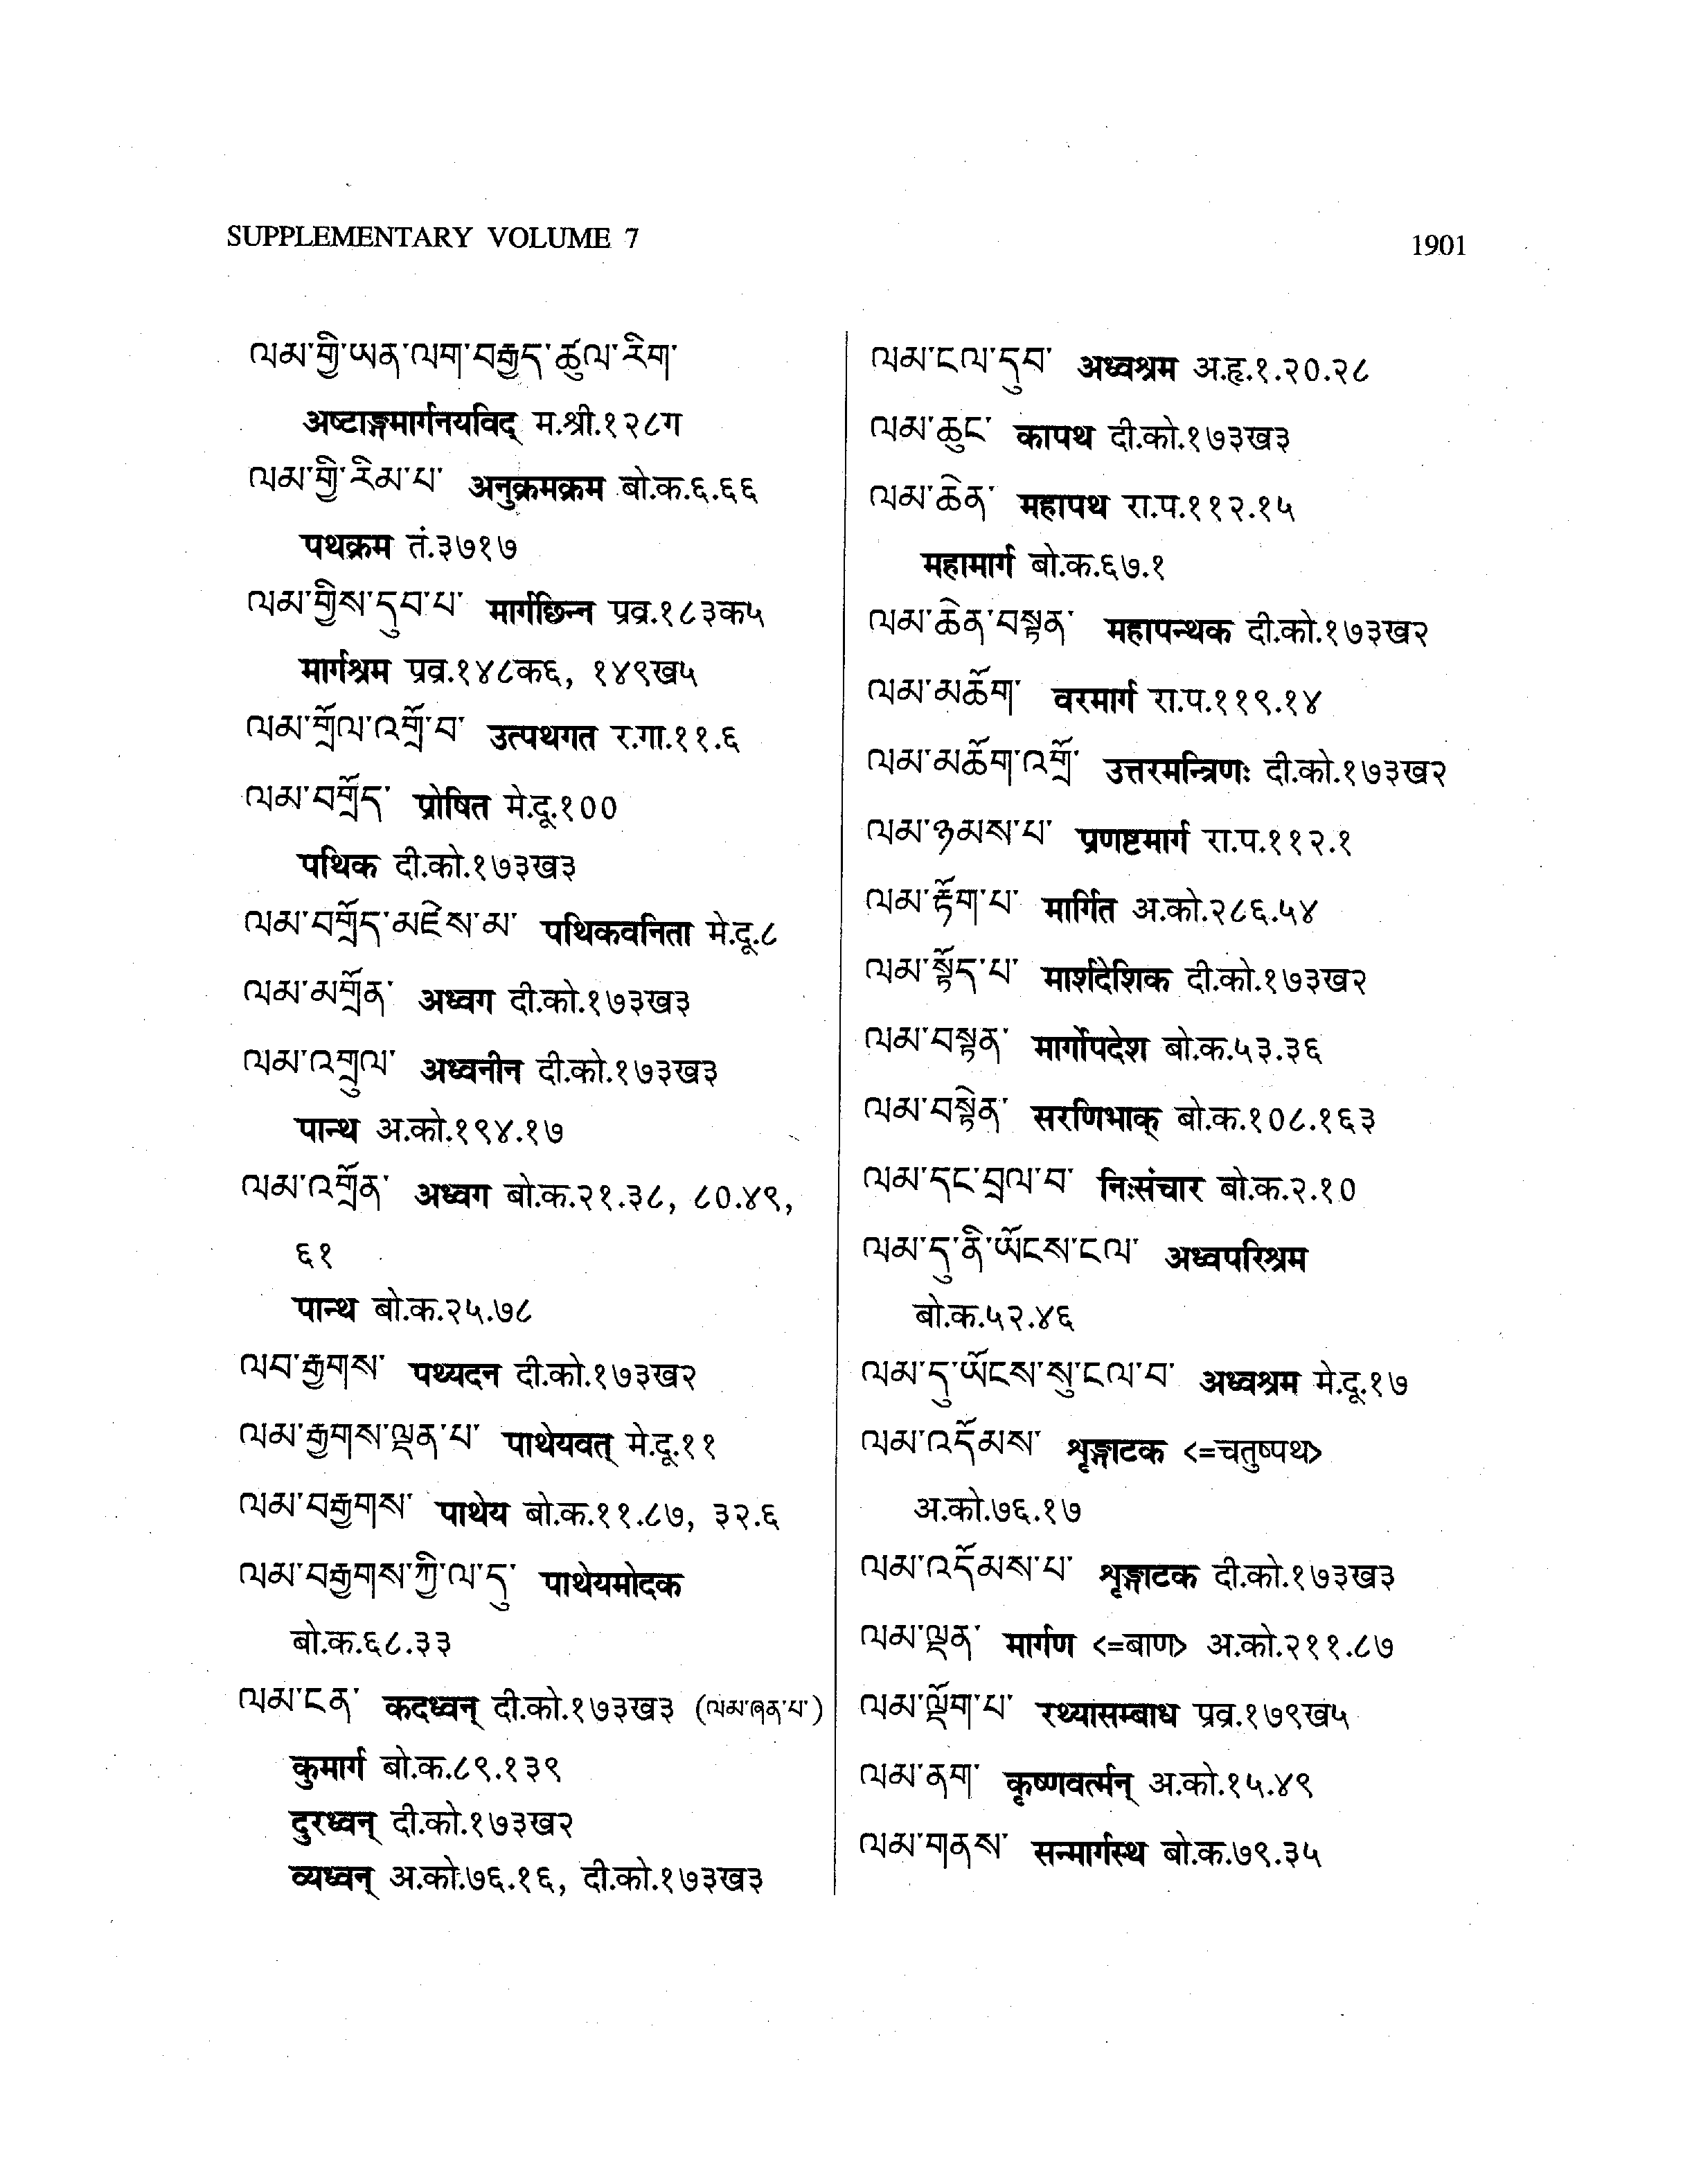 SUPPLEMENTARY VOLUME 7
1901
ལམ་གྱི་ཡན་ལག་བརྒྱད་ཚུལ་རིག་
अष्टाङ्गमार्गनयविद् म.श्री.१२८ग
ལམ་གྱི་རིམ་པ་ अनुक्रमक्रम बो.क.६.६६
पथक्रम तं.३७१७
ལམ་གྱིས་དུབ་པ་ मार्गछिन्न प्रव्र.१८३क५
मार्गश्रम प्रव्र.१४८क६, १४९ख५
ལམ་གྲོལ་འགྲོ་བ་ उत्पथगत र.गा.११.६
ལམ་བགྲོད་ प्रोषित मे.दू.१००
पथिक दी.को.१७३ख३
ལམ་བགྲོད་མཛེས་མ་ पथिकवनिता मे.दू.८
ལམ་མགྲོན་ अध्वग दी.को.१७३ख३
ལམ་འགྲུལ་ अध्वनीन दी.को.१७३ख३
पान्थ अ.को.१९४.१७
ལམ་འགྲོན་ अध्वग बो.क.२१.३८, ८०.४९,
६१
पान्थ बो.क.२५.७८
ལབ་རྒྱགས་ पथ्यदन दी.को.१७३ख२
ལམ་རྒྱགས་ལྡན་པ་ पाथेयवत् मे.दू.११
ལམ་བརྒྱགས་ पाथेय बो.क.११.८७, ३२.६
ལམ་བརྒྱགས་ཀྱི་ལ་དུ་ पाथेयमोदक
बो.क.६८.३३
ལམ་ངན་ कदध्वन् दी.को.१७३ख३ (ལམ་ཞན་པ་)
कुमार्ग बो.क.८९.१३९
दुरध्वन् दी.को.१७३ख२
व्यध्वन् अ.को.७६.१६, दी.को.१७३ख३
ལམ་ངལ་དུབ་ अध्वश्रम अ.हृ.१.२०.२८
ལམ་ཆུང་ कापथ दी.को.१७३ख३
ལམ་ཆེན་ महापथ रा.प.११२.१५
महामार्ग बो.क.६७.१
ལམ་ཆེན་བསྟན་ महापन्थक दी.को.१७३ख२
ལམ་མཆོག་ वरमार्ग रा.प.११९.१४
ལམ་མཆོག་འགྲོ་ उत्तरमन्त्रिणः दी.को.१७३ख२
ལམ་ཉམས་པ་ प्रणष्टमार्ग रा.प.११२.१
ལམ་རྟོག་པ་ मार्गित अ.को.२८६.५४
ལམ་སྟོད་པ་ मार्शदेशिक दी.को.१७३ख२
ལམ་བསྟན་ मार्गोपदेश बो.क.५३.३६
ལམ་བསྟེན་ सरणिभाक् बो.क.१०८.१६३
ལམ་དང་བྲལ་བ་ निःसंचार बो.क.२.१०
ལམ་དུ་ནི་ཡོངས་ངལ་ अध्वपरिश्रम
बो.क.५२.४६
ལམ་དུ་ཡོངས་སུ་ངལ་བ་ अध्वश्रम मे.दू.१७
ལམ་འདོམས་ शृङ्गाटक <=चतुष्पथ>
अ.को.७६.१७
ལམ་འདོམས་པ་ शृङ्गाटक दी.को.१७३ख३
ལམ་ལྡན་ मार्गण <=बाण> अ.को.२११.८७
ལམ་ལྡོག་པ་ रथ्यासम्बाध प्रव्र.१७९ख५
ལམ་ནག་ कृष्णवर्त्मन् अ.को.१५.४९
ལམ་གནས་ सन्मार्गस्थ बो.क.७९.३५